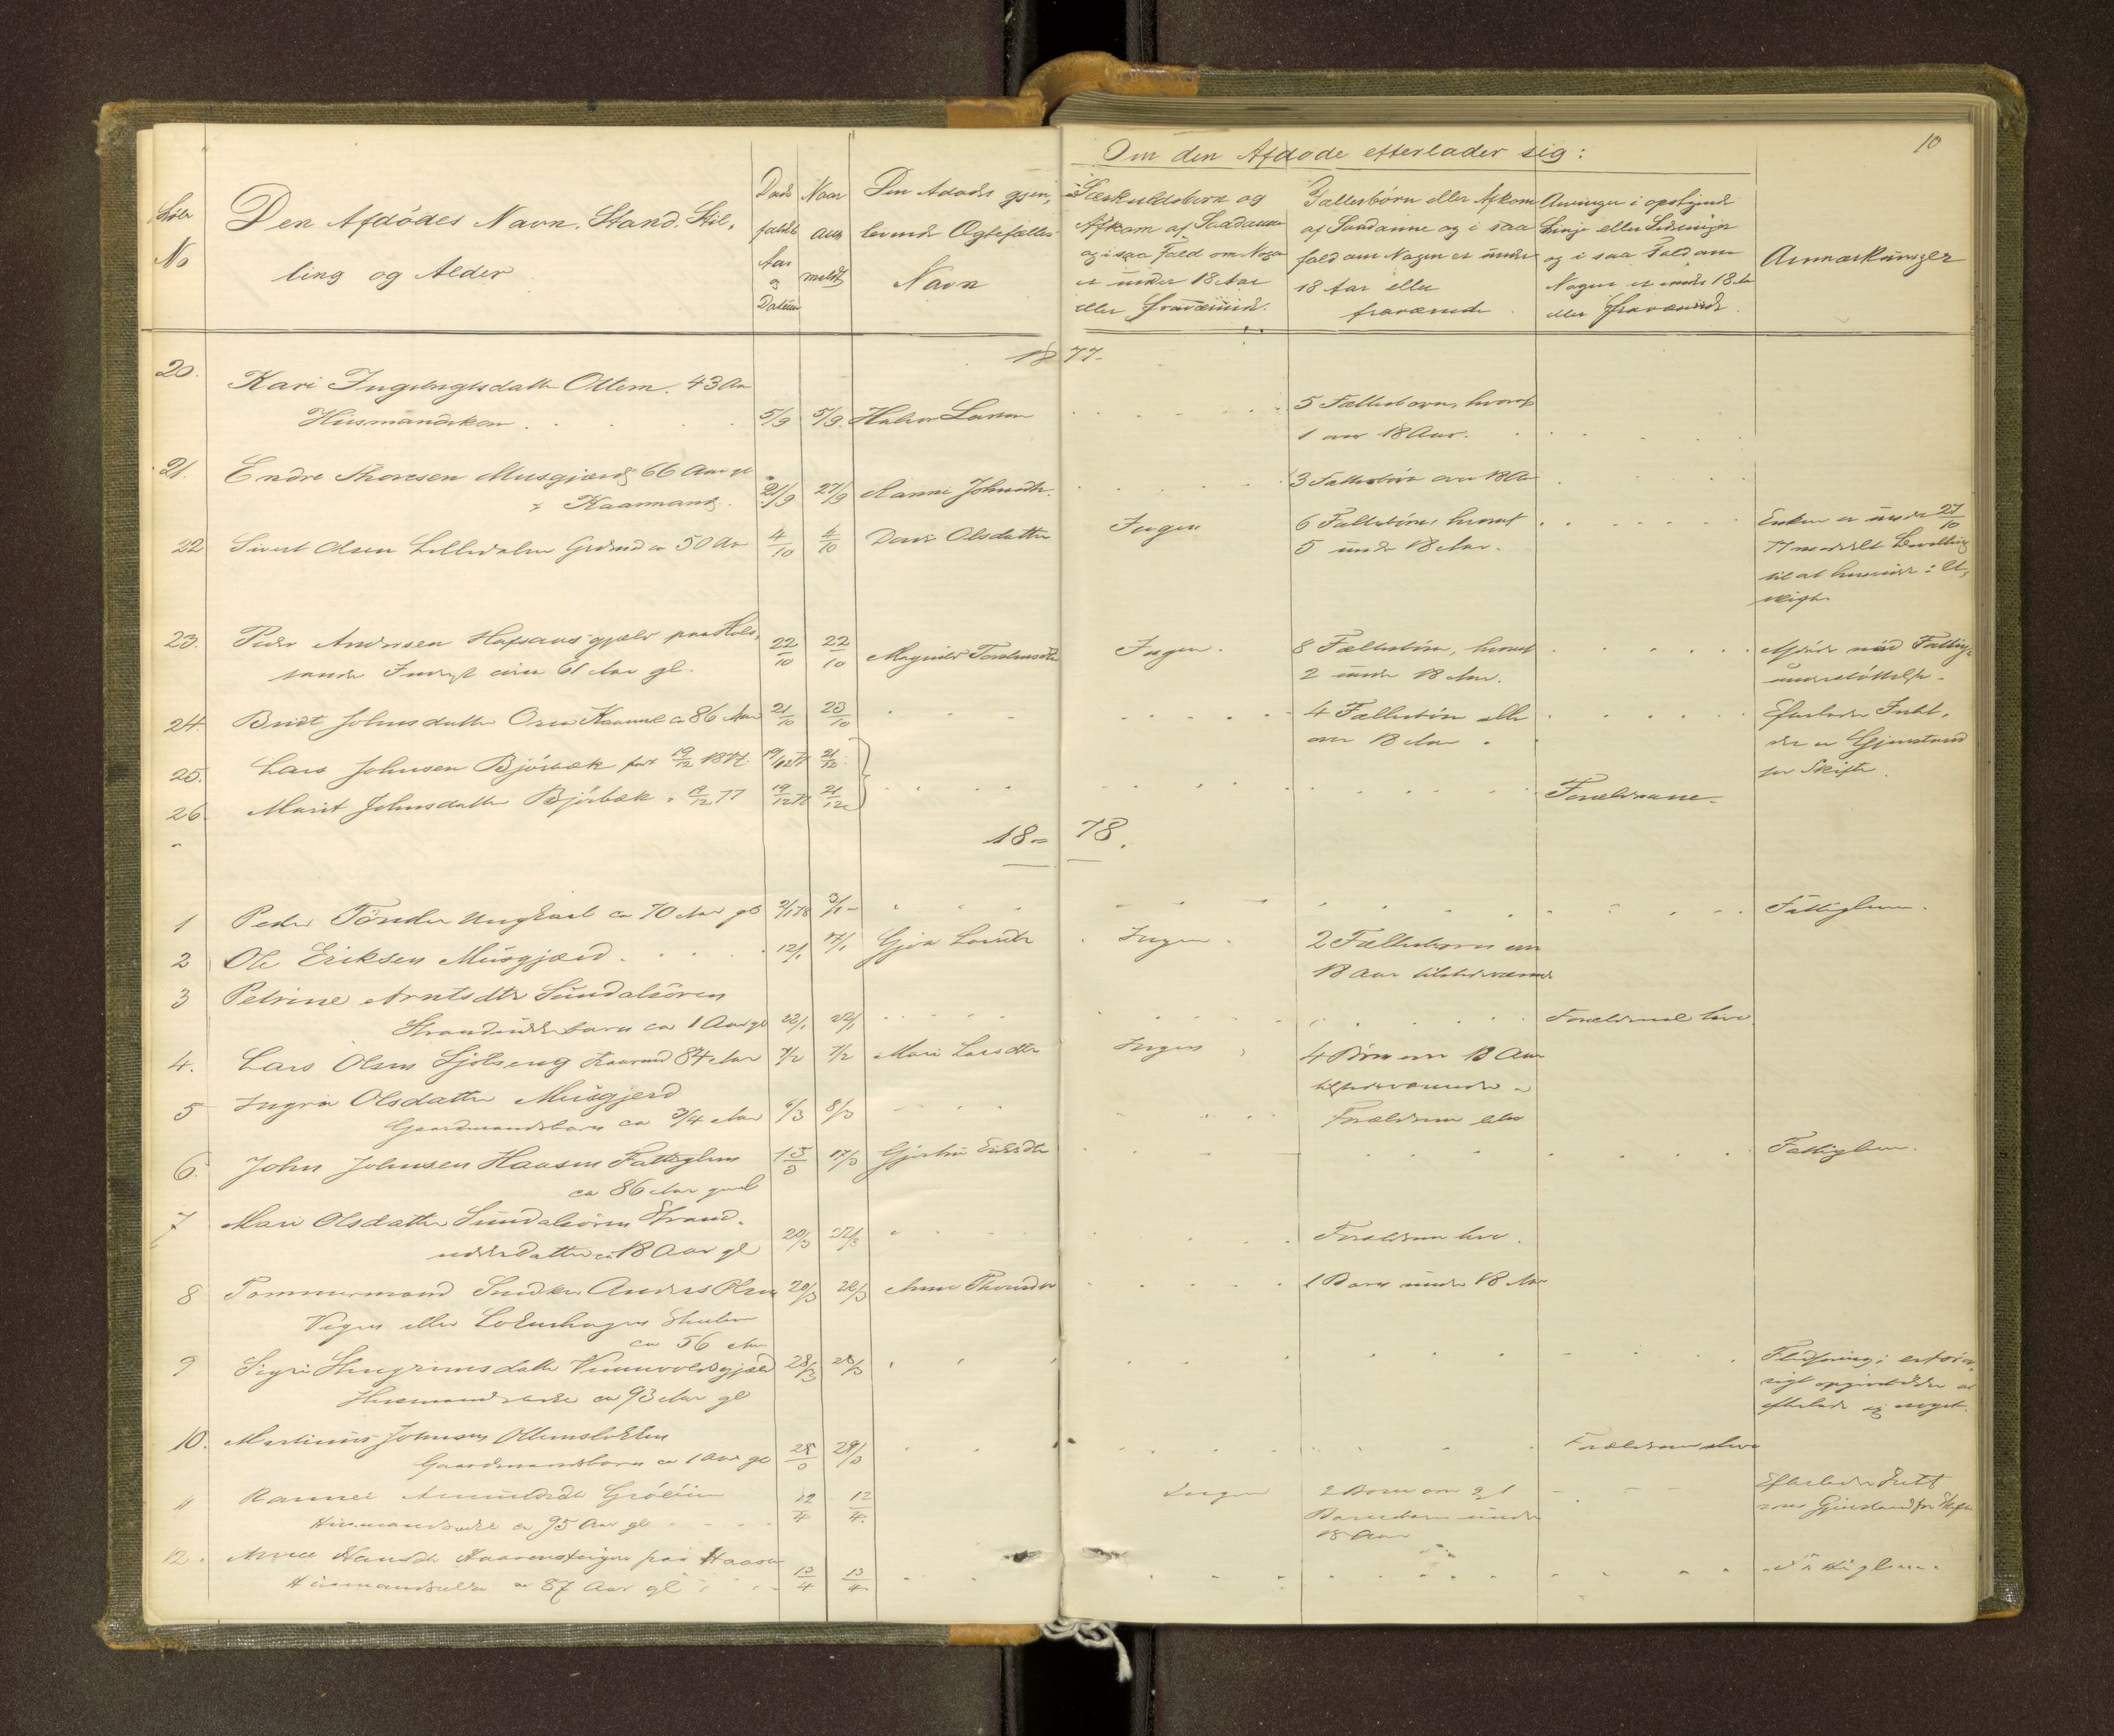 10
Om den Afdøde efterlader sig:
Løbe No
Den Afdødes Navn, Stand, Stilling og Alder
Døds faldet Aar og Datum
Naar anmeldt
Den Afdødes gjenlevende Ægtefælles Navn
Særkuldsbørn og Afkom af Saadanne og i saa Fald om Nogen er under 18 Aar eller fraværende.
Fællesbørn eller Afkom af Saadanne og i saa fald om Nogen er under 18 Aar eller fraværende
Arvinger i opstigende Linje eller Sidelinjer og i saa Fald om Nogen er under 18 Aar eller fraværende.
Anmærkninger
1877.
20. Kari Ingebrigtsdatter Ottem. 43 Aar
Husmandskone 5/9 5/9 Halvor Larsen 5 Fællesbørn, hvoraf
1 over 18 Aar.
21. Endre Thoresen Musgjærd 66 Aar gl
Kaarmand. 21/9 27/9 Ranni Johnsdtr. 3 Fællesbørn over 18 Aar
22 Sivert Olsen Lilledalen Grdmd ca 50 Aar 4/10 6/10 Olsdatter Ingen 6 Fællesbørn, hvoraf Enken er under 27/10
5 under 18 Aar. 77 meddelt Bevilling
til at hensidde i U-
skifte
23. Peder Andersen Hafsaas paa
Inderst circa 61 Aar gl. 22/10 22/10 Magnild Ingen. 8 Fællesbørn, hvoraf Afdøde nød Fattig-
2 under 18 Aar. understøttelse.
24. Brit Johnsdatter ca 86 Aar 21/10 23/10 4 Fællesbørn alle Efterlader Intet,
over 18 Aar der er Gjenstand
for Skifte.
25. Lars Johnsen Bjørbæk født 19/12 1877. 19/12 77 21/12
26. Marit Johnsdatter Bjørbæk " 19/12 77 19/12 77 21/12 Forældrene.
1878.
1 Peder Tønder Ungkarl ca 70 Aar gl 2/1 78 3/1 Fattiglem.
2 Ole Eriksen Musgjærd 12/1 Larsdtr Ingen 2 Fællesbørn over
18 Aar tilstedeværende
3 Petrine Arntsdtr Sundalsøren
Strandsidderbarn ca 1 Aar gl 22/1 22/1 Forældrene leve
4. Lars Olsen Sjølseng Kaarmd 84 Aar 7/2 7/2 Mari Larsdtr Ingen 4 Børn over 18 Aar
tilstedeværende
5 Ingrie Olsdatter Musgjerd
Gaardmandsbarn ca 3/4 Aar 6/3 8/3 Forældrene
6. John Johnsen Haasen Fattiglem 15/3 17/3 Eriksdtr Fattiglem.
ca 86 Aar gml
7 Mari Olsdatter Sundalsøren Strand-
sidderdatter ca 18 Aar gl 20/3 22/3 Forældrene leve.
8 Tømmermand Snedker Anders Olsen 20/3 22/3 Anne 1 Barn under 18 Aar
eller
ca 56 Aar
9 Sigri datter 28/3 28/3
Husmandsenke ca 93 Aar gl
efterlade sig noget.
10. Martinius Johnsen
Gaardmandsbarn ca 1 Aar gl 28/3 29/3 Forældrene leve
11 Rannei
Husmandsenke ca 95 Aar gl 12/4 12/4 Ingen 2 Børn og 1 Efterlader Intet
Barnebarn under som Gjenstand for Skifte
18 Aar
12. Hansdtr paa Haasen
Husmandsenke ca 87 Aar gl 13/4 13/4 Fattiglem.